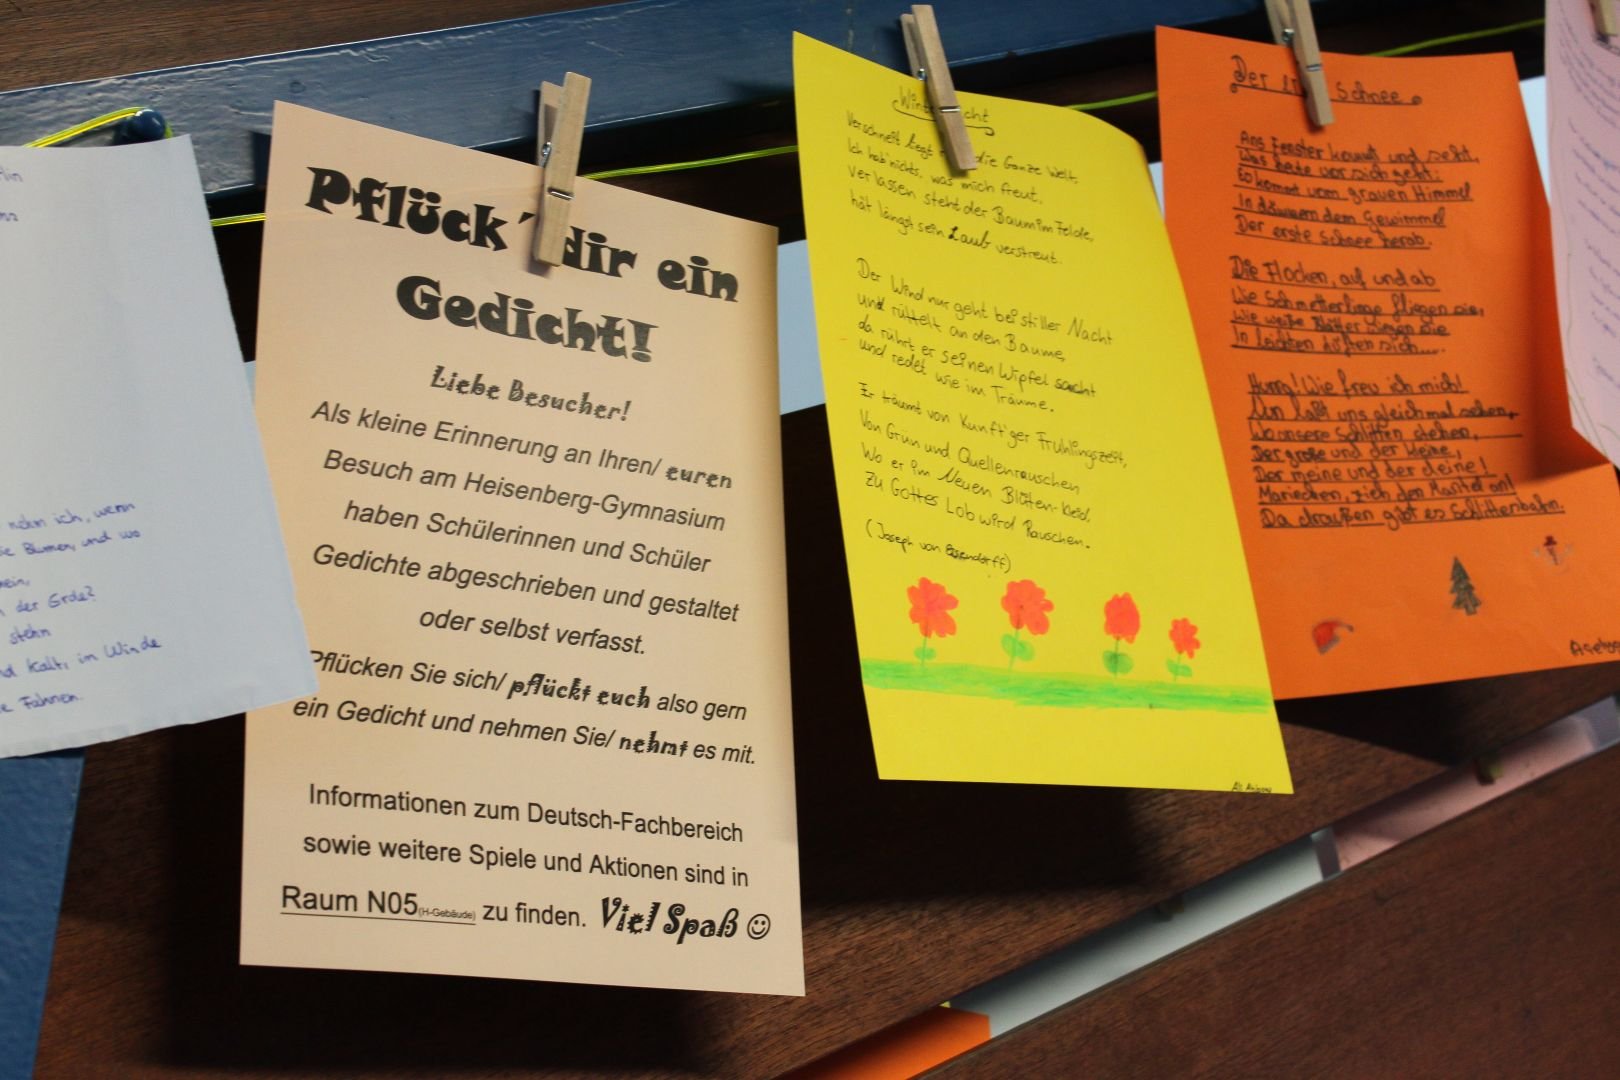 nehm ich, wenn
die Blumen, und wo
der Erde?
stehn
und kalt, im Winde
Fahnen.
Pflück´ dir ein
Gedicht!
Liebe Besucher!
Als kleine Erinnerung an Ihren/ euren
Besuch am Heisenberg-Gymnasium
haben Schülerinnen und Schüler
Gedichte abgeschrieben und gestaltet
oder selbst verfasst.
Pflücken Sie sich/ pflückt euch also gern
ein Gedicht und nehmen Sie/ nehmt es mit.
Informationen zum Deutsch-Fachbereich
sowie weitere Spiele und Aktionen sind in
Raum N05(H-Gebäude) zu finden. Viel Spaß ☺
Verschneit liegt die Ganze Welt,
Ich hab'nichts, was mich freut,
Verlassen steht der Baum im Felde,
hat längst sein Laub verstreut.
Der Wind nur geht bei stiller Nacht
und rüttelt an den Baume,
da rührt er seinen Wipfel sacht
und redet wie im Träume.
Er träumt von Kunft'ger Frühlingszeit,
Von Grün und Quellenrauschen
Wo er im Neuen Blüten-Kleid,
Zu Gottes Lob wird Rauschen.
(Joseph von
Der Schnee
Ans Fenster kommt und seht,
Was heute vor sich geht:
Es kommt vom grauen Himmel
In dem Gewimmel
Der erste Schnee herab.
Die Flocken, auf und ab
Wie Schmetterlinge fliegen sie,
Wie weiße Blätter wiegen sie
In leichten Lüften sich....
Hurra! Wie freu ich mich!
Nun laßt uns gleich mal sehen,
Wo unsere Schlitten stehen,
Der große und der kleine,
Der meine und der deine!
Mariechen, zieh den Mantel an!
Da draußen gibt es Schlittenbahn.